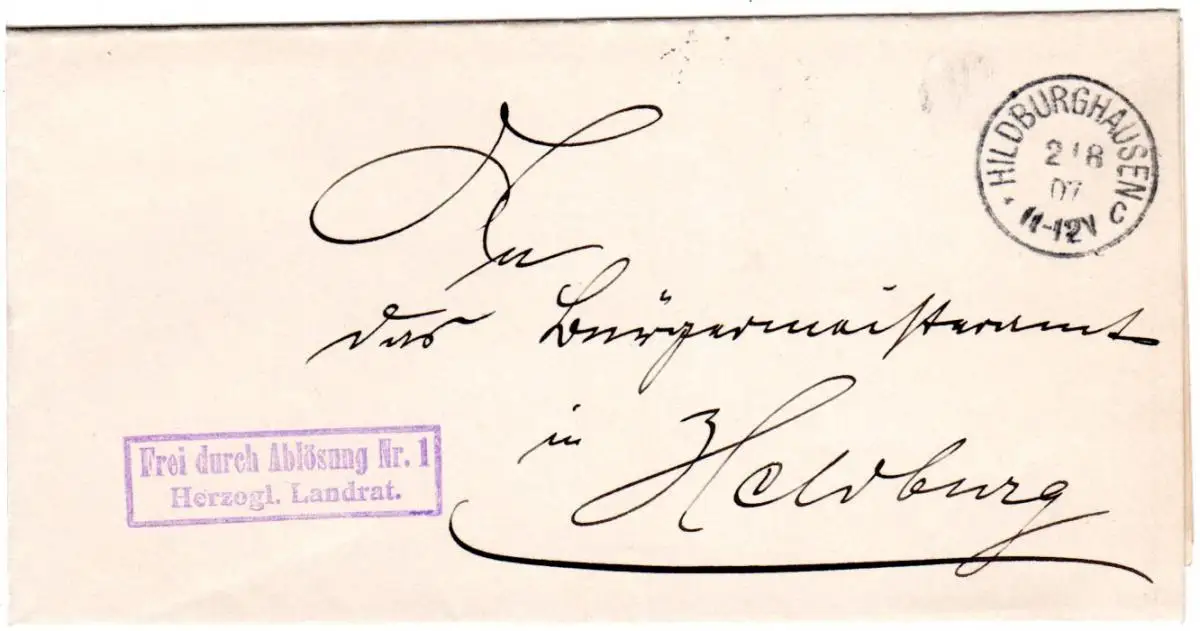 HILDBURGHAUSEN c
2 8
07
11-12V
An
das Bürgermeisteramt
in Heldburg
Frei durch Ablösung Nr. 1
Herzogl. Landrat.